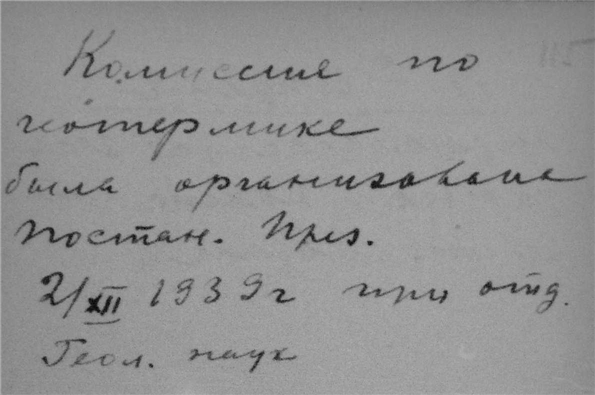 Комиссия по
115
геотермике
была организована
постан. През.
2/XII 1939 г при отд.
Геол. наук